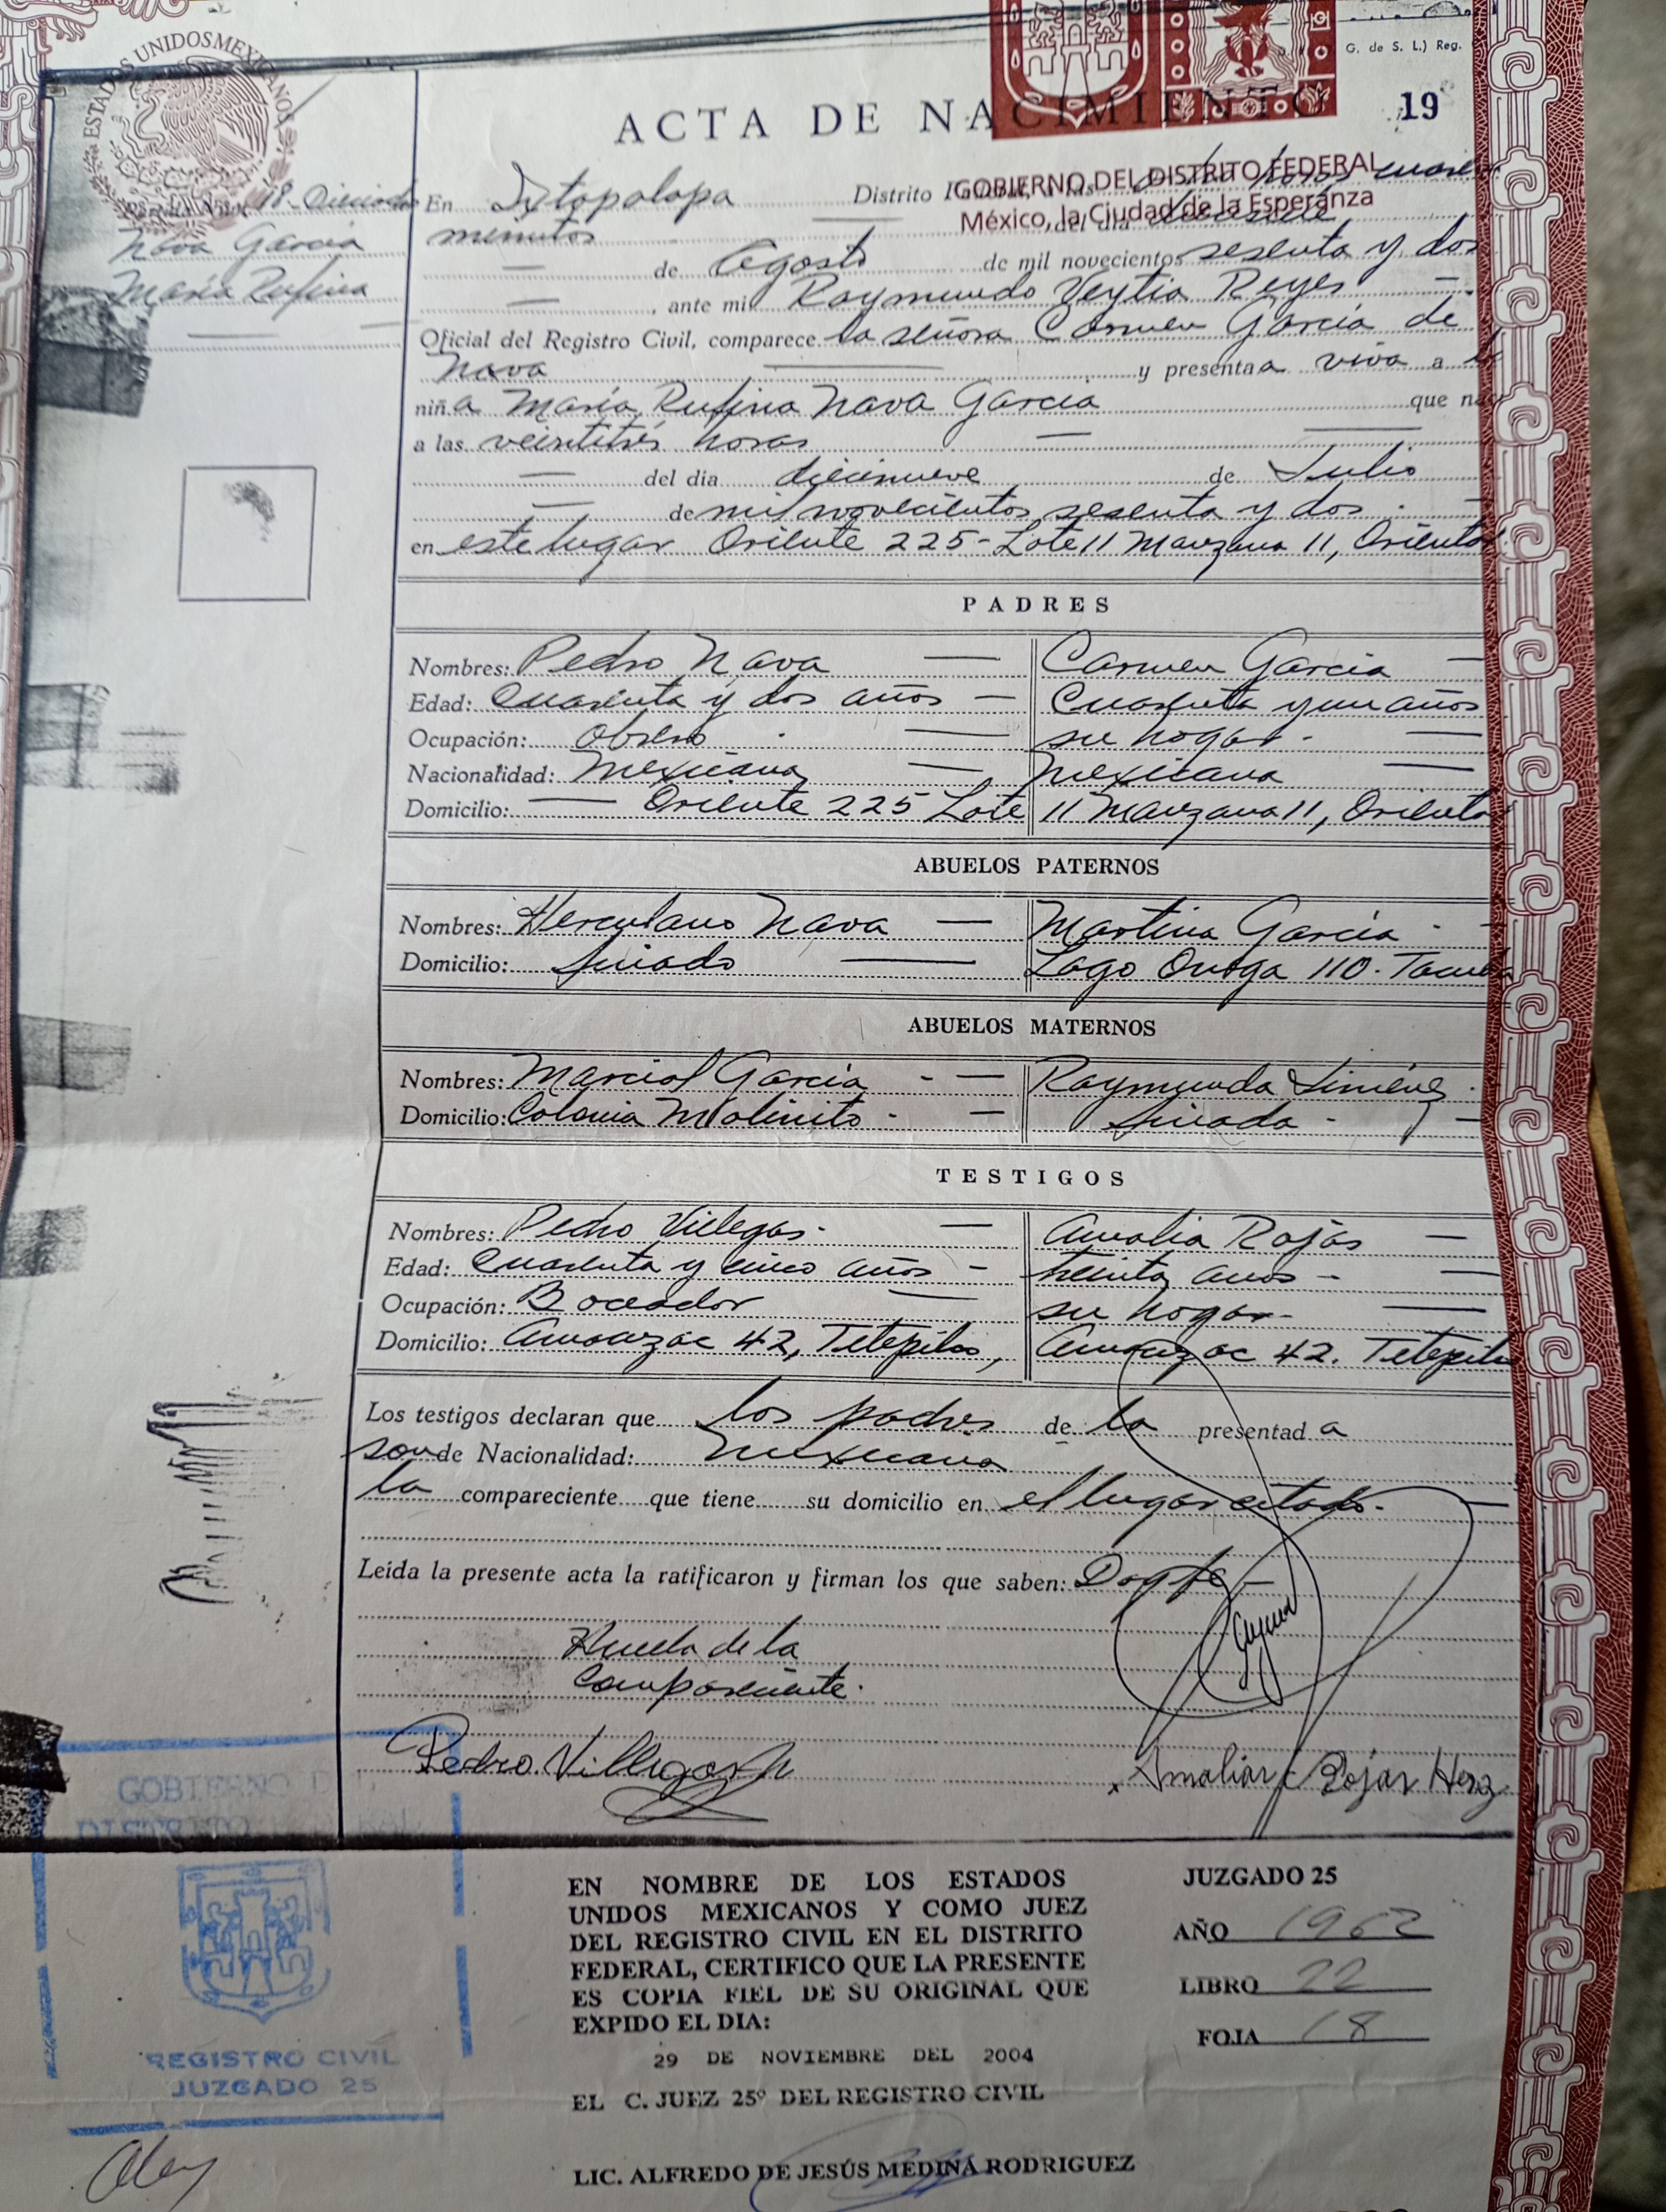 G. de S. L.) Reg.
ESTADOS UNIDOS MEXICANOS
ACTA DE NACIMIENTO 19
GOBIERNO DEL DISTRITO FEDERAL
México, la Ciudad de la Esperanza
18-
Nava García
María Rufina
En Ixtapalapa Distrito horas cuaren
minutos del día
de Agosto de mil novecientos sesenta y dos
, ante mi Raymundo Veytia Reyes
Oficial del Registro Civil, comparece la señora Carmen García de
Nava y presenta a viva a
niña María Rufina Nava García que na
a las veintitrés horas
del día diecinueve de Julio
de mil novecientos sesenta y dos
en este lugar Oriente 225- Lote 11 Manzana 11, Oriental
PADRES
Nombres: Pedro Nava Carmen García
Edad: Cuarenta y dos años Cuarenta y un años
Ocupación: Obrero su hogar.
Nacionalidad: Mexicana Mexicana
Domicilio: Oriente 225 Lote 11 Manzana 11, Oriental
ABUELOS PATERNOS
Nombres: Herculano Nava Martina García
Domicilio: finado Lago Onega 110. Tacuba
ABUELOS MATERNOS
Nombres: Marcial García Raymunda Jiménez
Domicilio: Colonia Molinito finada
TESTIGOS
Nombres: Pedro Villegas Amalia Rojas
Edad: Cuarenta y cinco años treinta años
Ocupación: Boceador su hogar
Domicilio: Amacuzac 42, Tetepilco, Amacuzac 42. Tetepilco
Los testigos declaran que los padres de la presentada
son de Nacionalidad: Mexicana
la compareciente que tiene su domicilio en el lugar citado.
Leída la presente acta la ratificaron y firman los que saben: Doy fe
Huella de la
Compareciente.
Pedro Villegas Amalia Rojas Herz
GOBIERNO DEL
DISTRITO FEDERAL
REGISTRO CIVIL
JUZGADO 25
EN NOMBRE DE LOS ESTADOS
UNIDOS MEXICANOS Y COMO JUEZ
DEL REGISTRO CIVIL EN EL DISTRITO
FEDERAL, CERTIFICO QUE LA PRESENTE
ES COPIA FIEL DE SU ORIGINAL QUE
EXPIDO EL DIA:
29 DE NOVIEMBRE DEL 2004
EL C. JUEZ 25º DEL REGISTRO CIVIL
LIC. ALFREDO DE JESÚS MEDINA RODRIGUEZ
JUZGADO 25
AÑO 1962
LIBRO 22
FOJA 18